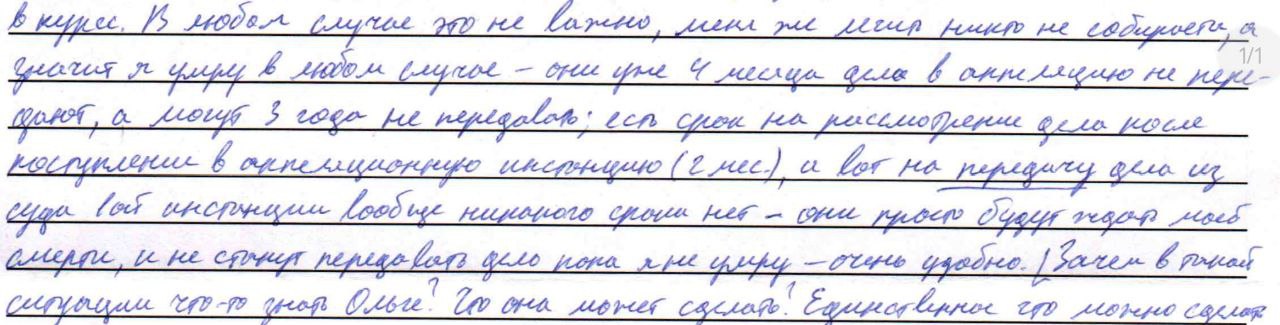 в курсе. В любом случае это не важно, меня же лечить никто не собирается, а
значит я умру в любом случае – они уже 4 месяца дело в аппеляцию не пере-
дают, а могут 3 года не передавать; есть срок на рассмотрение дела после
поступления в аппеляционную инстанцию (2 мес.), а вот на передачу дела из
суда 1ой инстанции вообще никакого срока нет – они просто будут ждать моей
смерти, и не станут передавать дело пока я не умру – очень удобно. (Зачем в такой
ситуации что-то знать Ольге? Что она может сделать? Единственное что можно сделать
1/1